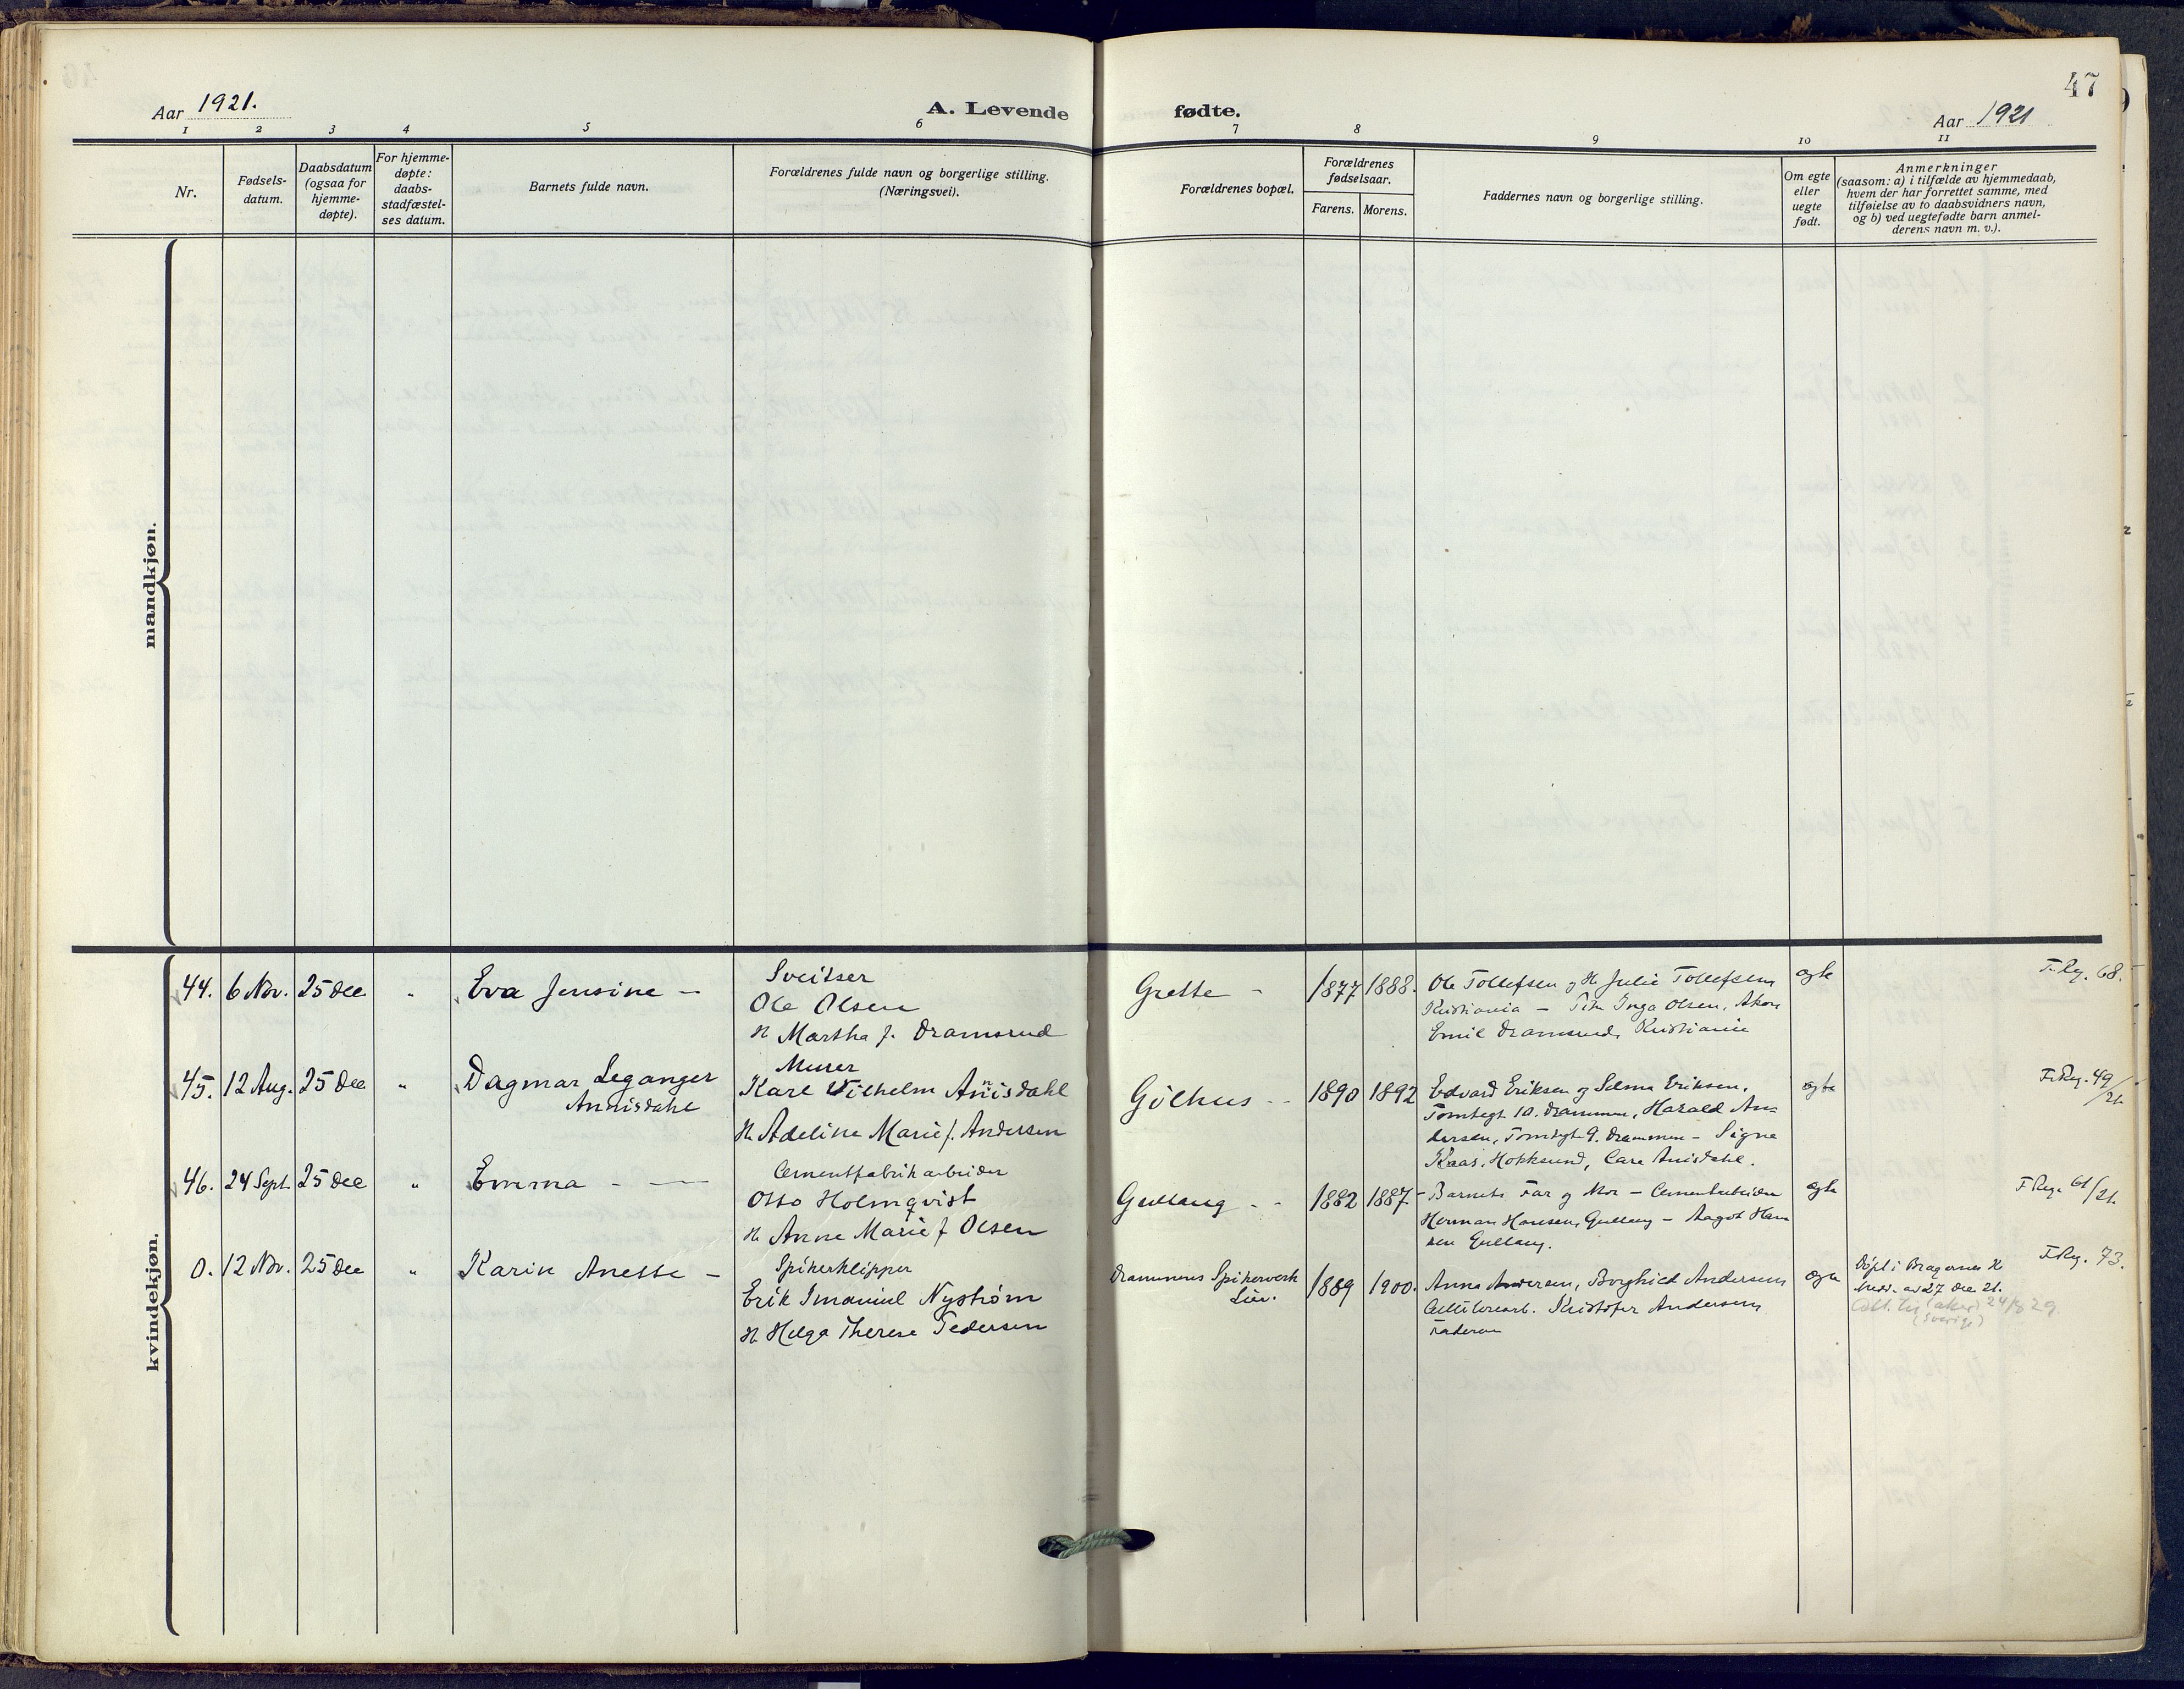 47
Aar 1921.
A. Levende fødte.
Aar 1921
1 2 3 4 5 6 7 8 9 10 11
Nr.
Fødsels-
datum.
Daabsdatum
(ogsaa for
hjemme-
døpte).
For hjemme-
døpte:
daabs-
stadfæstel-
ses datum.
Barnets fulde navn.
Forældrenes fulde navn og borgerlige stilling.
(Næringsvei).
Forældrenes bopæl.
Forældrenes
fødselsaar.
Farens. Morens.
Faddernes navn og borgerlige stilling.
Om egte
eller
uegte
født.
Anmerkninger
(saasom: a) i tilfælde av hjemmedaab,
hvem der har forrettet samme, med
tilføielse av to daabsvidners navn,
og b) ved uegtefødte barn anmel-
derens navn m. v.).
mandkjøn.
kvindekjøn.
44. 6 Nov. 25 Dec " Eva Jensine —
Sveitser
Ole Olsen
H. Martha f. Dramsrud
Grette - 1877 1888.
Ole Tollefsen og H. Julie Tollefsen
Kristiania — Inga Olsen,
Emil Dramsrud, Kristiania
egte
F. Reg. 68.
45. 12 Aug. 25 Dec " Dagmar Leganger
Annisdahl
Murer
Karl Vilhelm Annisdahl
H. Adeline Marie f. Andersen
Gilhus - - 1890 1892
Edvard Eriksen og Selma Eriksen,
Tomtegt 10. Drammen, Harald An-
dersen, Tomtegt 9. Drammen - Signe
Kaas, Hokksund, Cara Anisdahl.
egte
F. Reg. 49/21.
46. 24 Sept. 25 Dec " Emma - —
Cementfabrikarbeider
Otto Holmqvist
H. Anne Marie f Olsen
Gullaug - - 1882 1887
Barnets Far og Mor - Cementarbeider
Herman Hansen, Gullaug - Aagot Han
sen Gullaug.
egte
F. Reg. 61/21.
0. 12 Nov. 25 Dec " Karin Anette —
Spikerklipper
Erik Imanuel Nystrøm
H. Helga Therese Pedersen
Drammens Spikerverk
Lier.
1889 1900.
Anna Andersen, Borghild Andersen
Cellulosearb. Kristofer Andersen
Faderen
egte
Døpt i Bragernes K
Medd. av 27 Dec 21.
Att. 24/8 29
(Sverige)
F. Reg. 73.